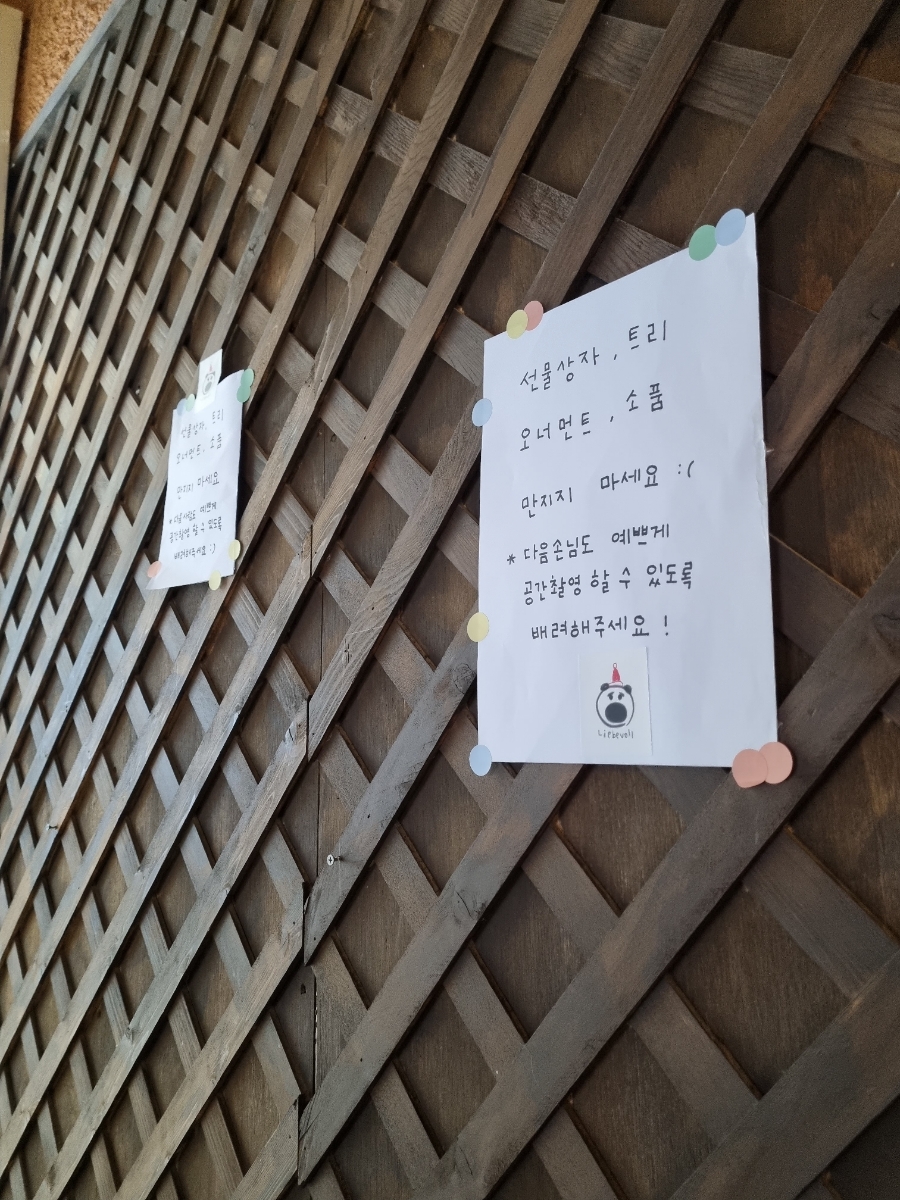 선물상자, 트리
오너먼트, 소품
만지지 마세요
*다음사람도 예쁘게
공간촬영 할 수 있도록
배려해주세요 :)
선물상자, 트리
오너먼트, 소품
만지지 마세요 :(
* 다음손님도 예쁘게
공간촬영 할 수 있도록
배려해주세요 !
Liebevoll